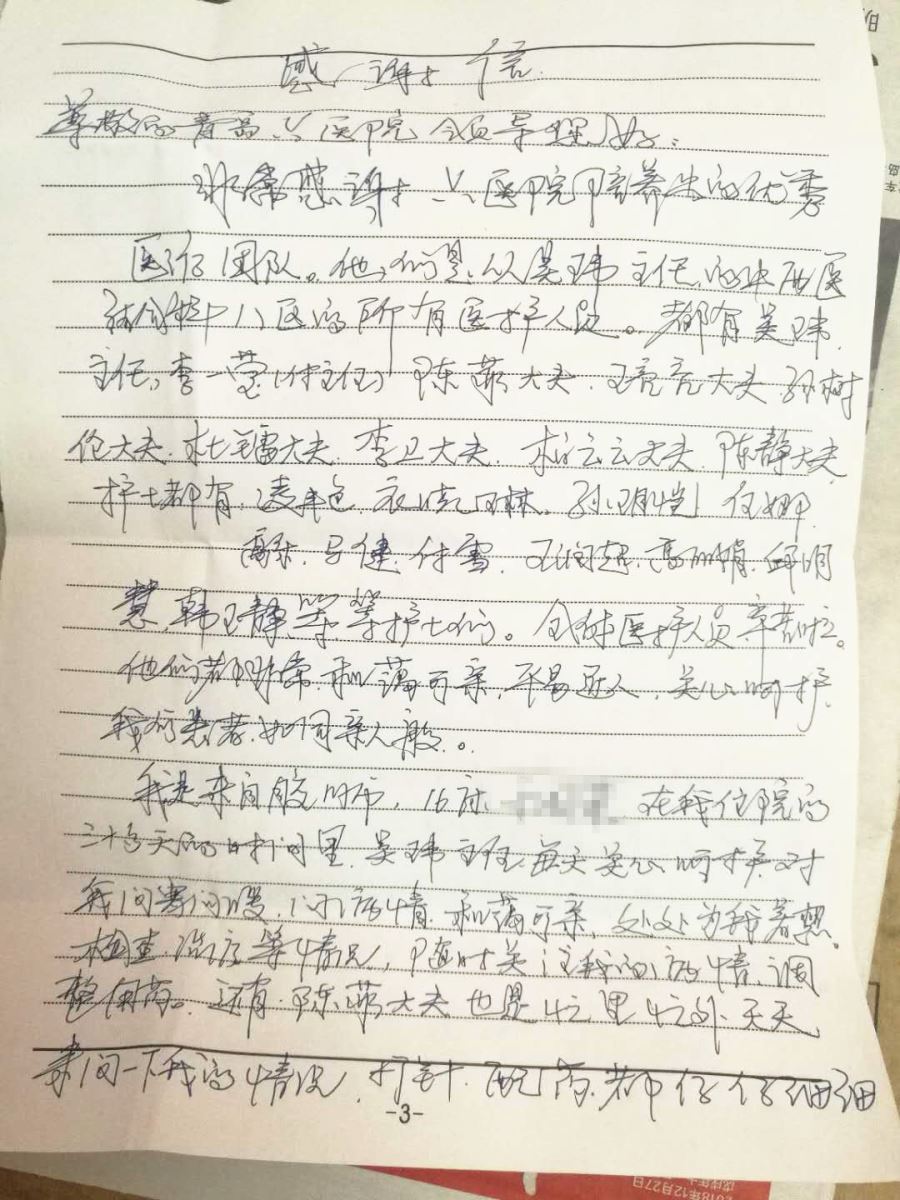 感谢信
尊敬的青岛六医院领导 好:
非常感谢六医院培养出的优秀
医疗团队。他们是以吴玮主任的中西医
结合 八区的所有医护人员。都有吴玮
主任,李一莹(付主任)陈 大夫、王亮亮大夫、孙树
伦大夫、杜 大夫、李卫大夫、 云云大夫、陈静大夫
护士都有: 任娜
马健、付雪、
慧、韩玉静等等护士们。全体医护人员辛苦啦。
他们都非常和蔼可亲,平易近人,关心呵护
我们患者如同亲人般。
我是来自胶州市, 在我住院的
三十多天的时间里,吴玮主任每天关心呵护对
我问寒问暖,问病情,和蔼可亲,处处为我着想。
检查治疗等情况,随时关注我的病情,调
整用药。还有陈 大夫也是忙里忙外,天天
来问一下我的情况,打针、配药都仔仔细细
-3-
2018年12月27日